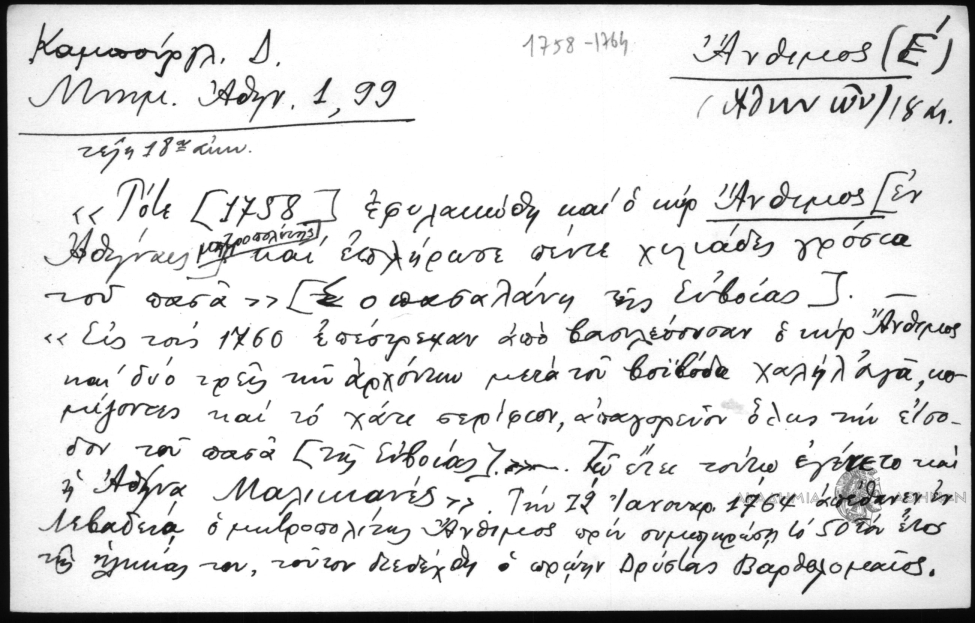 Καμπούρογλ. Δ.
Μνημ. Ἀθην. 1, 99
τέλη 18ου αἰων.
1758-1764
Ἄνθιμος (Ε΄)
(Ἀθηνῶν) 18 αι.
«Τότε [1758] ἐφυλακώθη καί ὁ κύρ Ἄνθιμος [ἐν
Ἀθήναις μητροπολίτης] καί ἐπλήρωσε πέντε χιλιάδες γρόσια
τοῦ πασᾶ» [ὁ πασαλάνη τῆς Εὐβοίας].
«Εἰς τοῖς 1760 ἐπέστρεψαν ἀπό βασιλεύουσαν ὁ κύρ Ἄνθιμος
καί δύο τρεῖς τῶν ἀρχόντων μετά τοῦ βοϊβόδα Χαλήλ Ἀγᾶ, κο-
μίζοντες καί τό χάτι σερίφιον, ἀπαγορεῦον ὅλως τήν εἴσο-
δον τοῦ πασᾶ [τῆς Εὐβοίας]. Τῷ ἔτει τούτῳ ἐγένετο καί
ἡ Ἀθήνα Μαλικιανές». Τήν 12 Ἰανουαρ. 1764 ἀπέθανεν ἐν
Λεβαδείᾳ ὁ μητροπολίτης Ἄνθιμος πρίν συμπληρώσῃ τό 50τόν ἔτος
τῆς ἡλικίας του, τοῦτον διεδέχθη ὁ πρώην Δρύστας Βαρθολομαῖος.